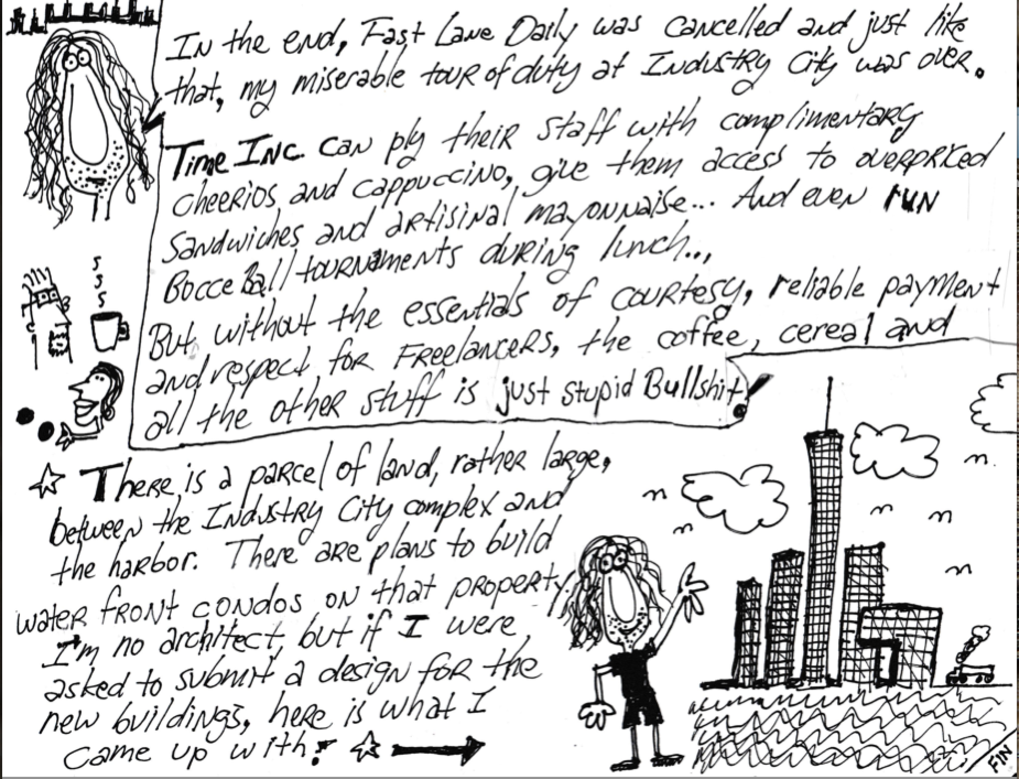 In the end, Fast Lane Daily was cancelled and just like
that, my miserable tour of duty at Industry City was over.
Time Inc. can ply their staff with complimentary
cheerios and cappuccino, give them access to overpriced
sandwiches and artisinal mayonnaise... And even run
Bocce Ball tournaments during lunch...
But, without the essentials of courtesy, reliable payment
and respect for Freelancers, the coffee, cereal and
all the other stuff is just stupid Bullshit!
☆ There is a parcel of land, rather large,
between the Industry City complex and
the harbor. There are plans to build
water front condos on that property.
I'm no architect, but if I were
asked to submit a design for the
new buildings, here is what I
came up with: ☆ →
FIN